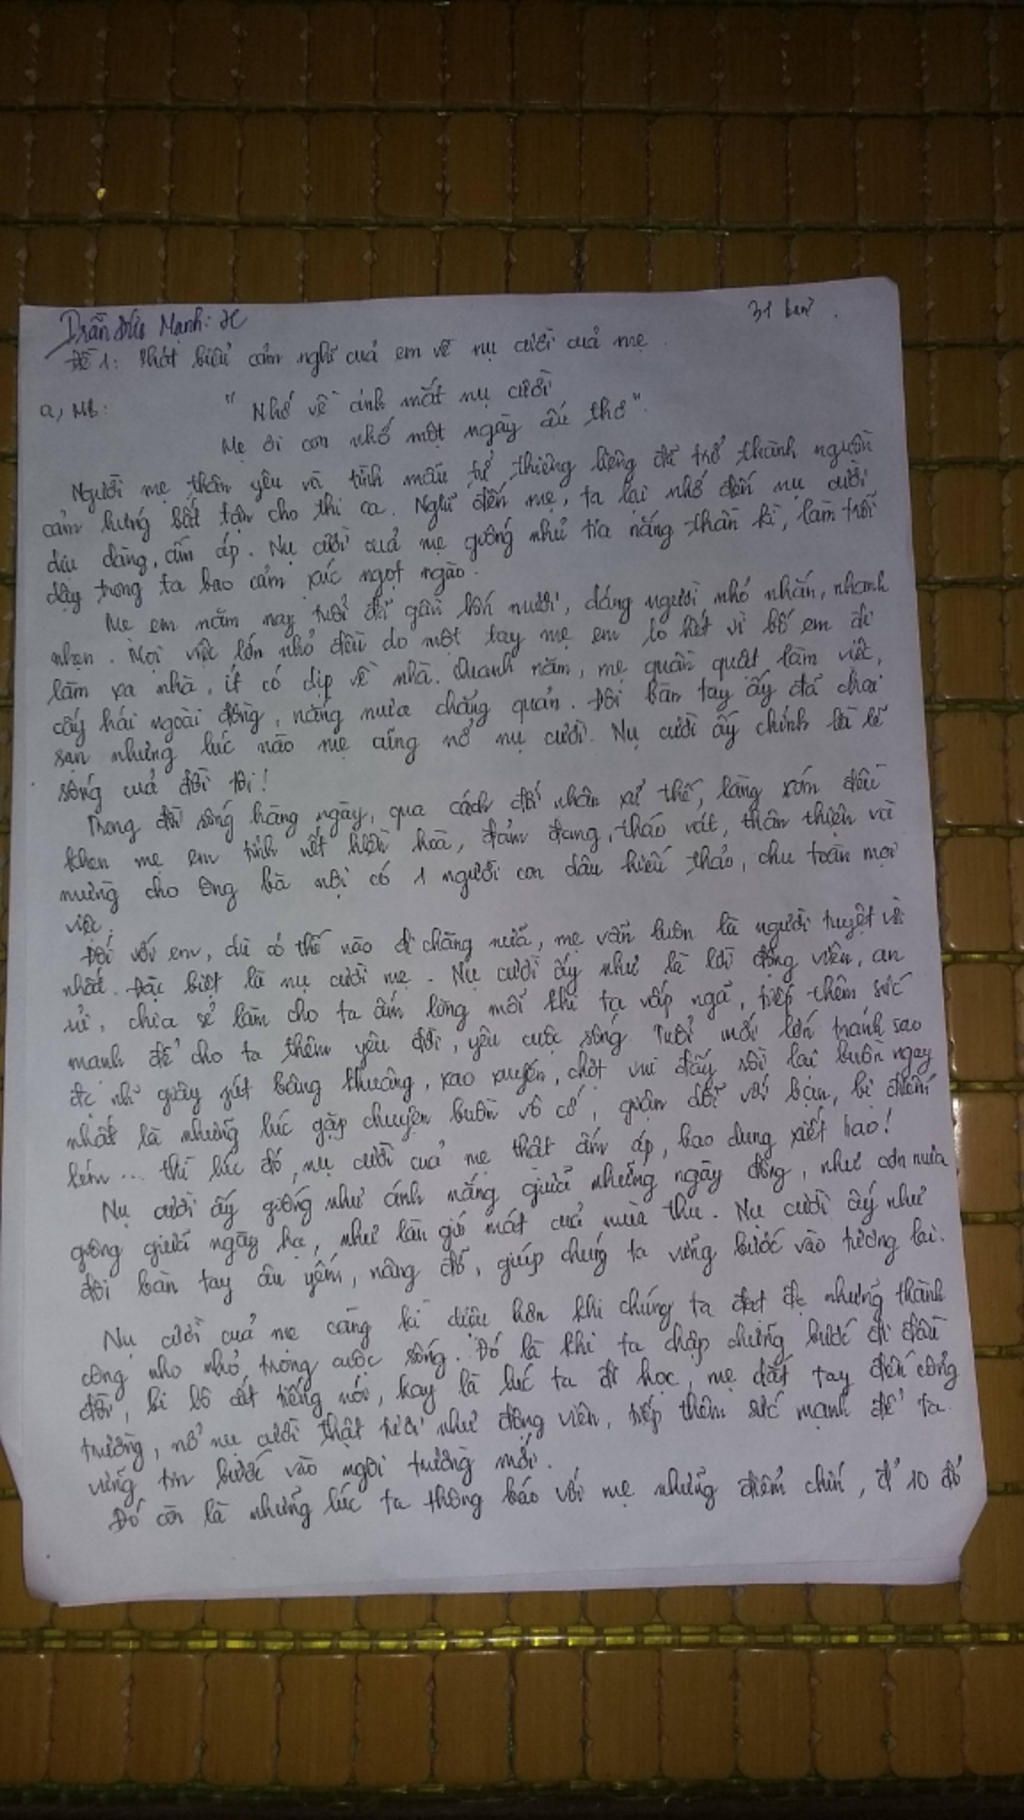 Trần Đức Mạnh: H
31 bưu
Đề 1: Phát biểu cảm nghĩ của em về nụ cười của mẹ.
a, MB: "Nhớ về ánh mắt nụ cười
Mẹ ơi con nhớ một ngày ấu thơ".
Người mẹ thân yêu và tình mẫu tử thiêng liêng đã trở thành nguồn
cảm hứng bất tận cho thi ca. Nghĩ đến mẹ, ta lại nhớ đến nụ cười
dịu dàng, ấm áp. Nụ cười của mẹ giống như tia nắng thần kì, làm trỗi
dậy trong ta bao cảm xúc ngọt ngào.
Mẹ em năm nay tuổi đã gần bốn mươi, dáng người nhỏ nhắn, nhanh
nhẹn. Mọi việc lớn nhỏ đều do một tay mẹ em lo hết vì bố em đi
làm xa nhà, ít có dịp về nhà. Quanh năm, mẹ quần quật làm việc,
cấy hái ngoài đồng, nắng mưa chẳng quản. Đôi bàn tay ấy đã chai
sạn nhưng lúc nào mẹ cũng nở nụ cười. Nụ cười ấy chính là lẽ
sống của đời tôi!
Trong đời sống hàng ngày, qua cách đối nhân xử thế, làng xóm đều
khen mẹ em tính nết hiền hoà, đảm đang, tháo vát, thân thiện và
mừng cho ông bà nội có 1 người con dâu hiếu thảo, chu toàn mọi
việc.
Đối với em, dù có thế nào đi chăng nữa, mẹ vẫn luôn là người tuyệt vời
nhất. Đặc biệt là nụ cười mẹ. Nụ cười ấy như là lời động viên, an
ủi, chia sẻ làm cho ta ấm lòng mỗi khi ta vấp ngã, tiếp thêm sức
mạnh để cho ta thêm yêu đời, yêu cuộc sống. Tuổi mới lớn tránh sao
đc những giây phút bâng khuâng, xao xuyến, chợt vui đấy rồi lại buồn ngay
nhất là những lúc gặp chuyện buồn vô cớ, giận dỗi với bạn, bị điểm
kém... thì lúc đó, nụ cười của mẹ thật ấm áp, bao dung xiết bao!
Nụ cười ấy giống như ánh nắng giữa những ngày đông, như cơn mưa
giông giữa ngày hạ, như làn gió mát của mùa thu. Nụ cười ấy như
đôi bàn tay âu yếm, nâng đỡ, giúp chúng ta vững bước vào tương lai.
Nụ cười của mẹ càng kì diệu hơn khi chúng ta đạt đc những thành
công nho nhỏ trong cuộc sống. Đó là khi ta chập chững bước đi đầu
đời, bi bô cất tiếng nói, hay là lúc ta đi học, mẹ dắt tay đến cổng
trường, nở nụ cười thật tươi như động viên, tiếp thêm sức mạnh để ta
vững tin bước vào ngôi trường mới.
Đó còn là những lúc ta thông báo với mẹ những điểm chín, đ 10 đỏ